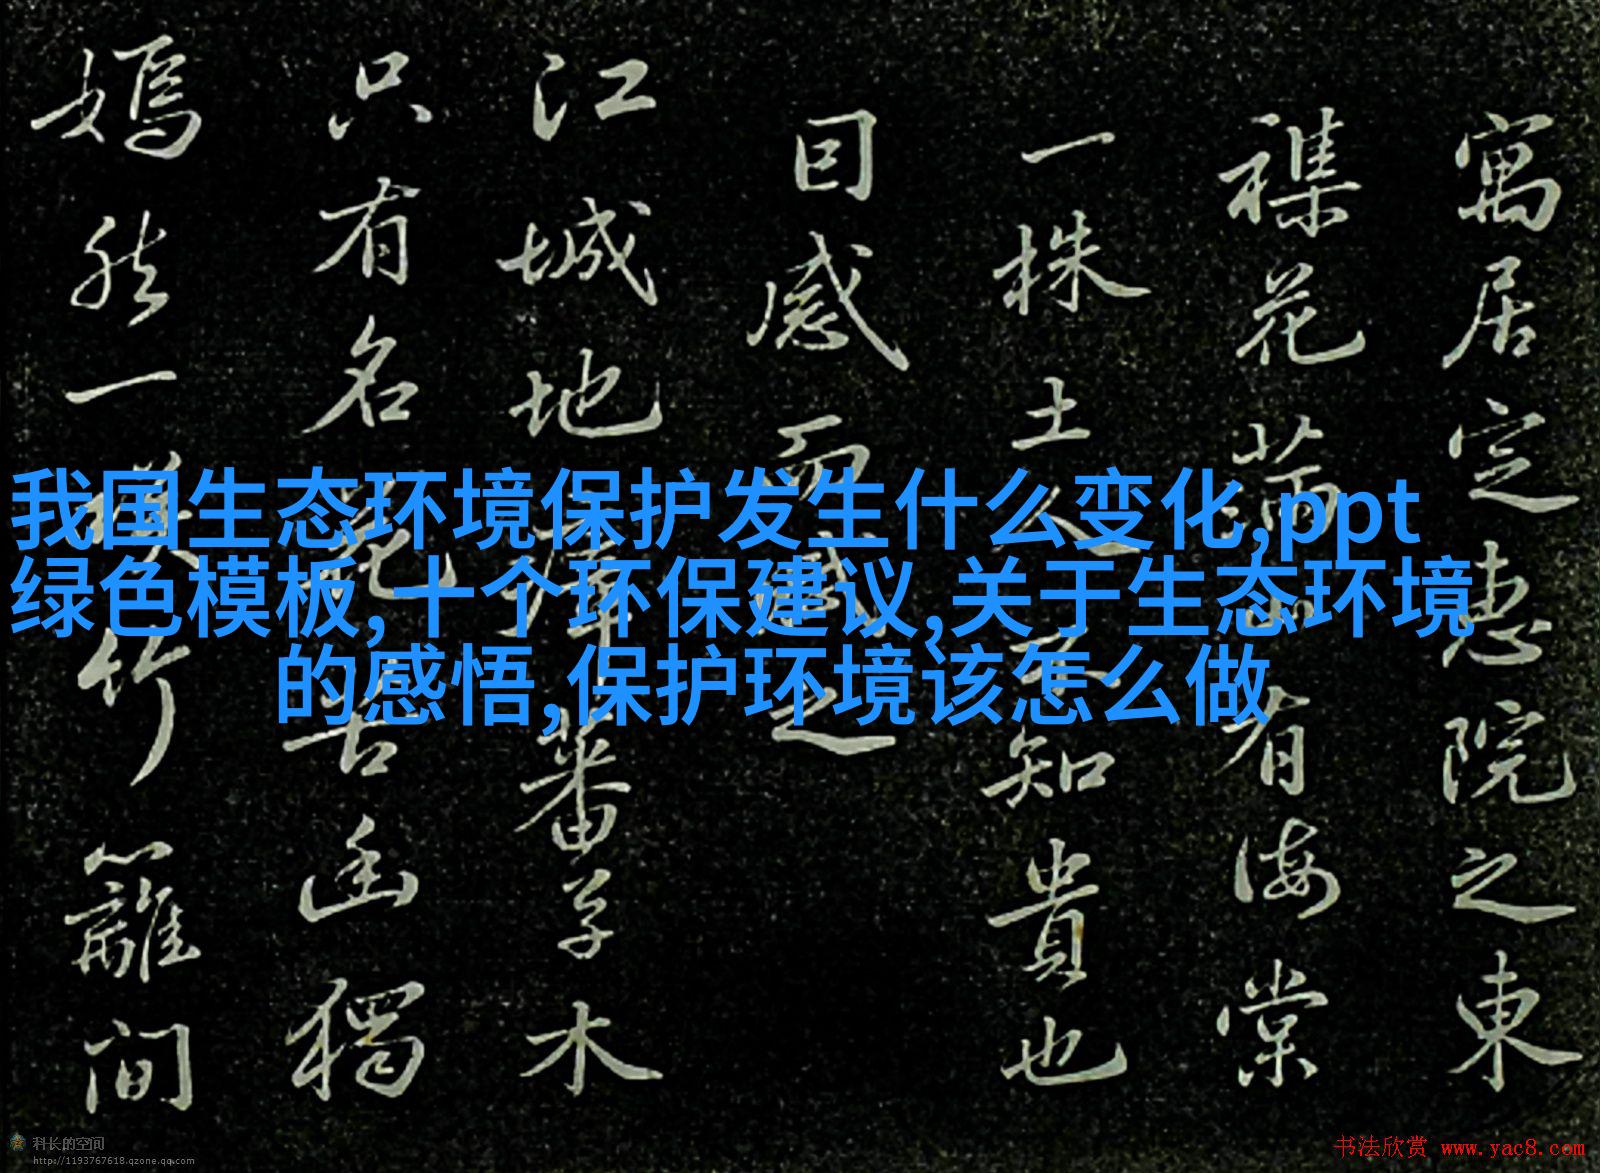 寓居定惠院之東
襍花滿山有海棠
一株土人不知貴也
囙感而之
江城地瘴蕃草木
只有名花苦幽獨
嫣然一笑竹籬間
我国生态环境保护发生什么变化,ppt
绿色模板,十个环保建议,关于生态环境
的感悟,保护环境该怎么做
科长的空间
http://1193767618.qzone.qq.com
书法欣赏 www.yac8.com